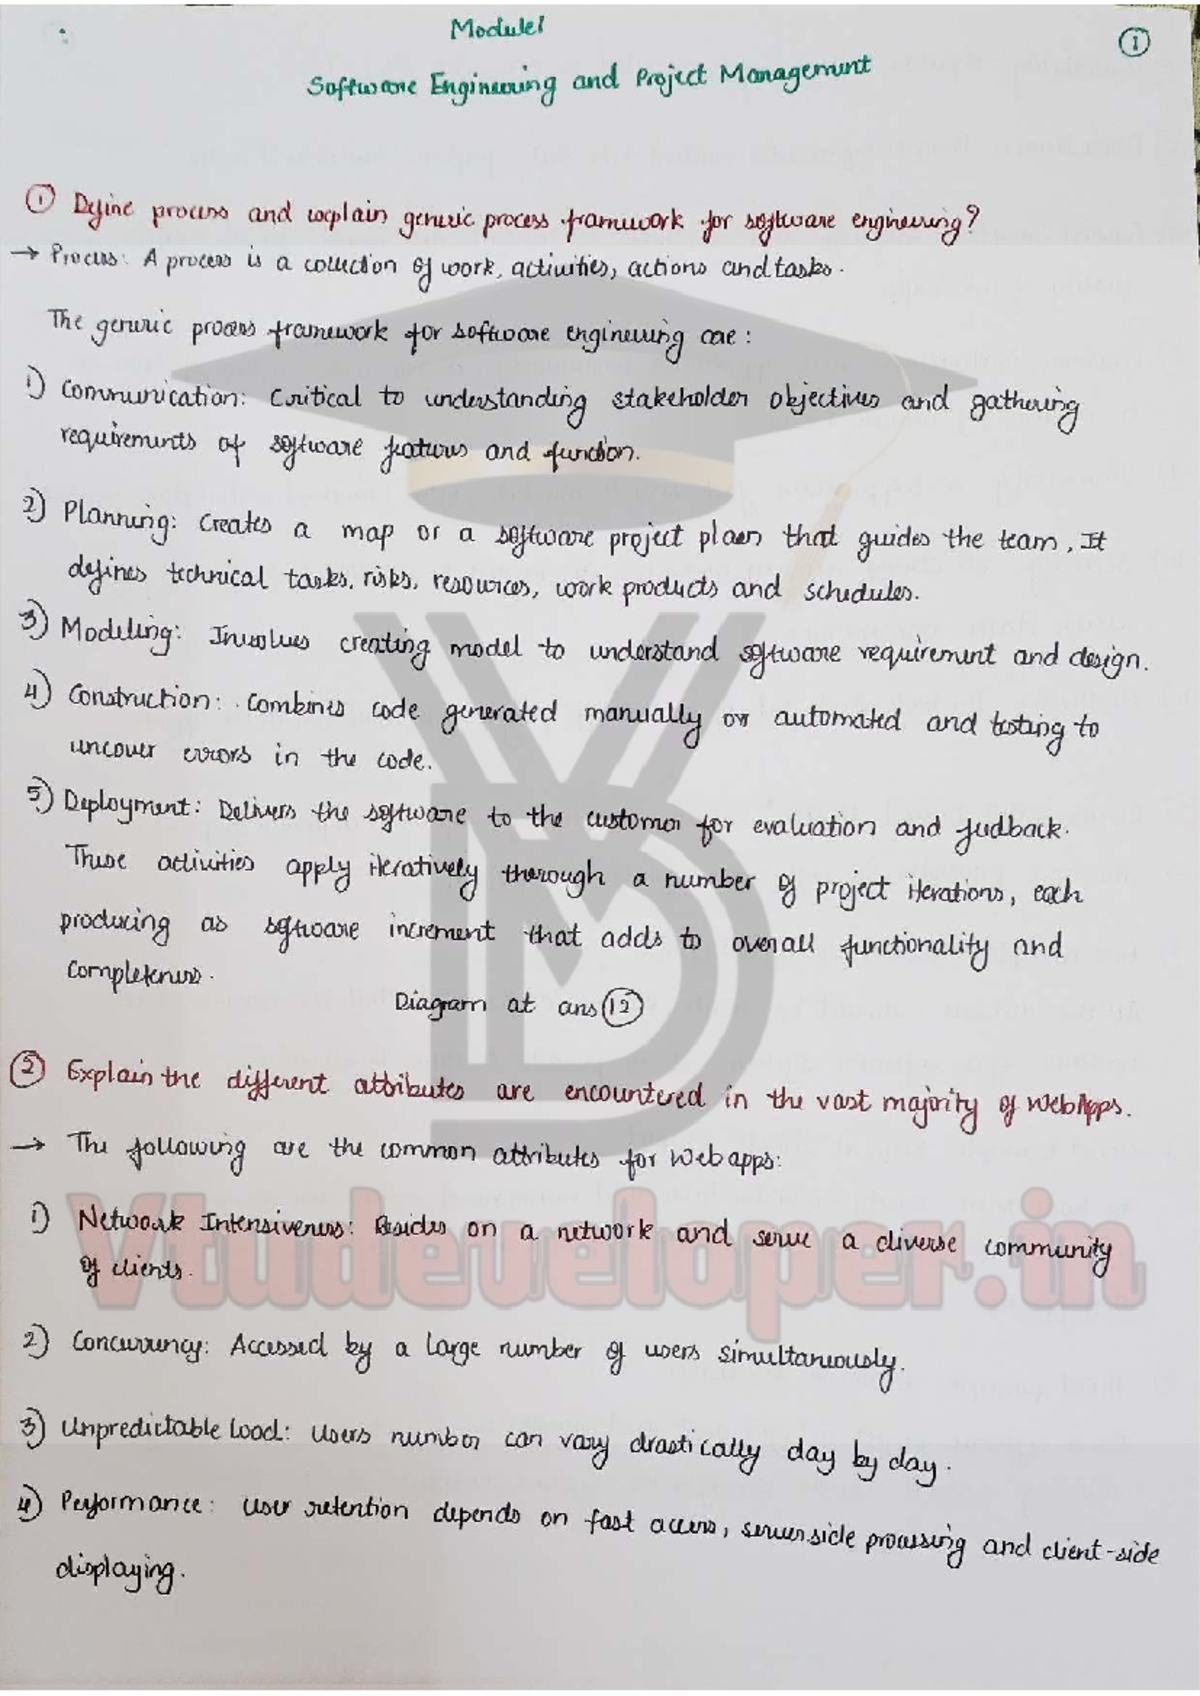 Module1
1
Software Engineering and Project Management
1 Define process and explain generic process framework for software engineering?
→ Process: A process is a collection of work, activities, actions and tasks.
The generic process framework for software engineering are:
1) Communication: Critical to understanding stakeholder objectives and gathering
requirements of software features and function.
2) Planning: Creates a map or a software project plan that guides the team, It
defines technical tasks, risks, resources, work products and schedules.
3) Modeling: Involves creating model to understand software requirement and design.
4) Construction: Combines code generated manually or automated and testing to
uncover errors in the code.
5) Deployment: Delivers the software to the customer for evaluation and feedback.
These activities apply iteratively through a number of project iterations, each
producing as software increment that adds to overall functionality and
completeness.
Diagram at ans 12
2 Explain the different attributes are encountered in the vast majority of WebApps.
→ The following are the common attributes for Web apps:
1) Network Intensiveness: Resides on a network and serve a diverse community
of clients.
2) Concurrency: Accessed by a large number of users simultaneously.
3) Unpredictable load: Users number can vary drastically day by day.
4) Performance: User retention depends on fast access, server side processing and client-side
displaying.
Vtudeveloper.in